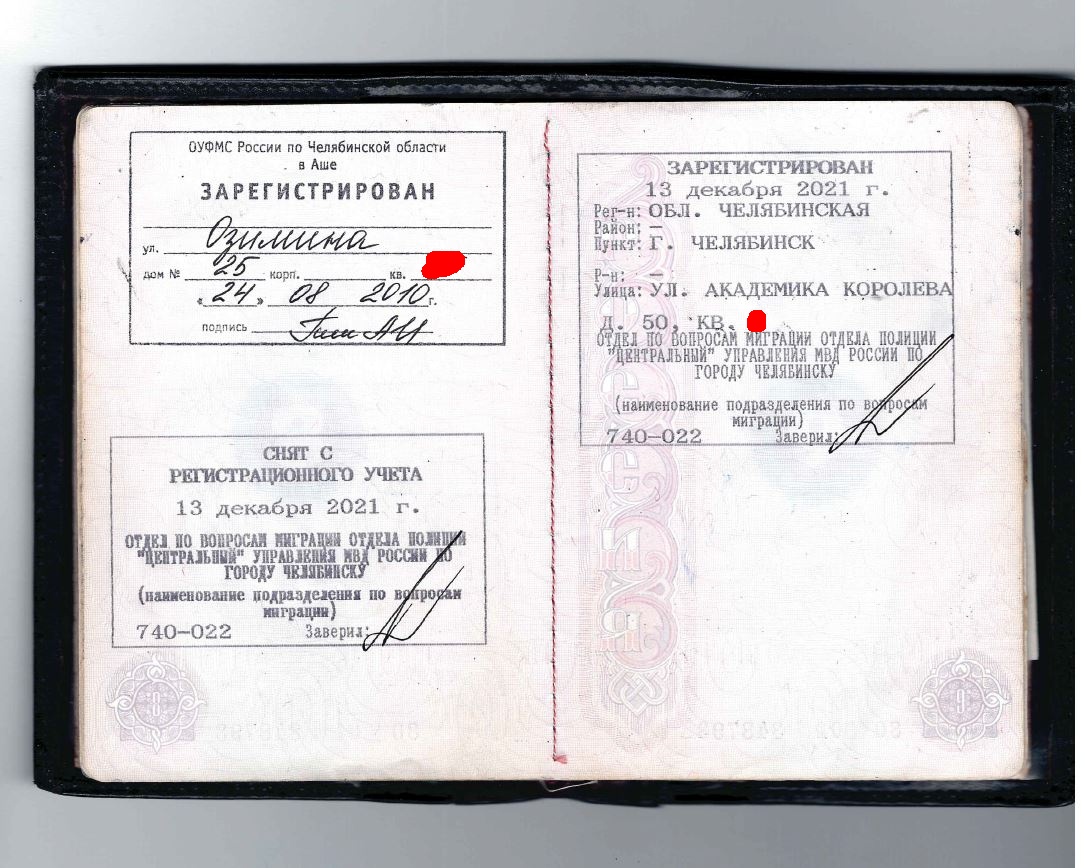 ОУФМС России по Челябинской области
в Аше
ЗАРЕГИСТРИРОВАН
ул. Озимина
дом № 25 корп. кв.
"24" 08 2010 г.
подпись
СНЯТ С
РЕГИСТРАЦИОННОГО УЧЕТА
13 декабря 2021 г.
ОТДЕЛ ПО ВОПРОСАМ МИГРАЦИИ ОТДЕЛА ПОЛИЦИИ
"ЦЕНТРАЛЬНЫЙ" УПРАВЛЕНИЯ МВД РОССИИ ПО
ГОРОДУ ЧЕЛЯБИНСКУ
(наименование подразделения по вопросам
миграции)
740-022 Заверил:
8
ЗАРЕГИСТРИРОВАН
13 декабря 2021 г.
Рег-н: ОБЛ. ЧЕЛЯБИНСКАЯ
Район: —
Пункт: Г. ЧЕЛЯБИНСК
Р-н: —
Улица: УЛ. АКАДЕМИКА КОРОЛЕВА
Д. 50, КВ.
ОТДЕЛ ПО ВОПРОСАМ МИГРАЦИИ ОТДЕЛА ПОЛИЦИИ
"ЦЕНТРАЛЬНЫЙ" УПРАВЛЕНИЯ МВД РОССИИ ПО
ГОРОДУ ЧЕЛЯБИНСКУ
(наименование подразделения по вопросам
миграции)
740-022 Заверил:
9